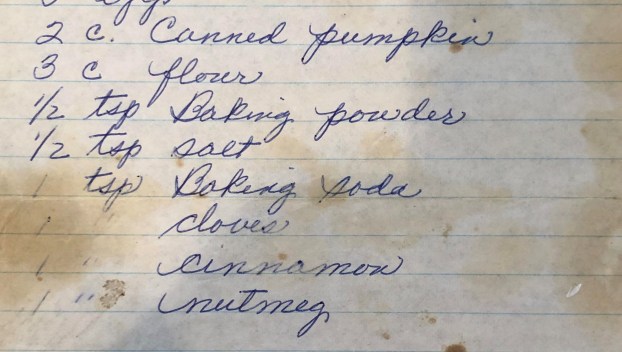 eggs
2 c. Canned pumpkin
3 c flour
1/2 tsp Baking powder
1/2 tsp salt
1 tsp Baking soda
1 " cloves
1 " cinnamon
1 " nutmeg